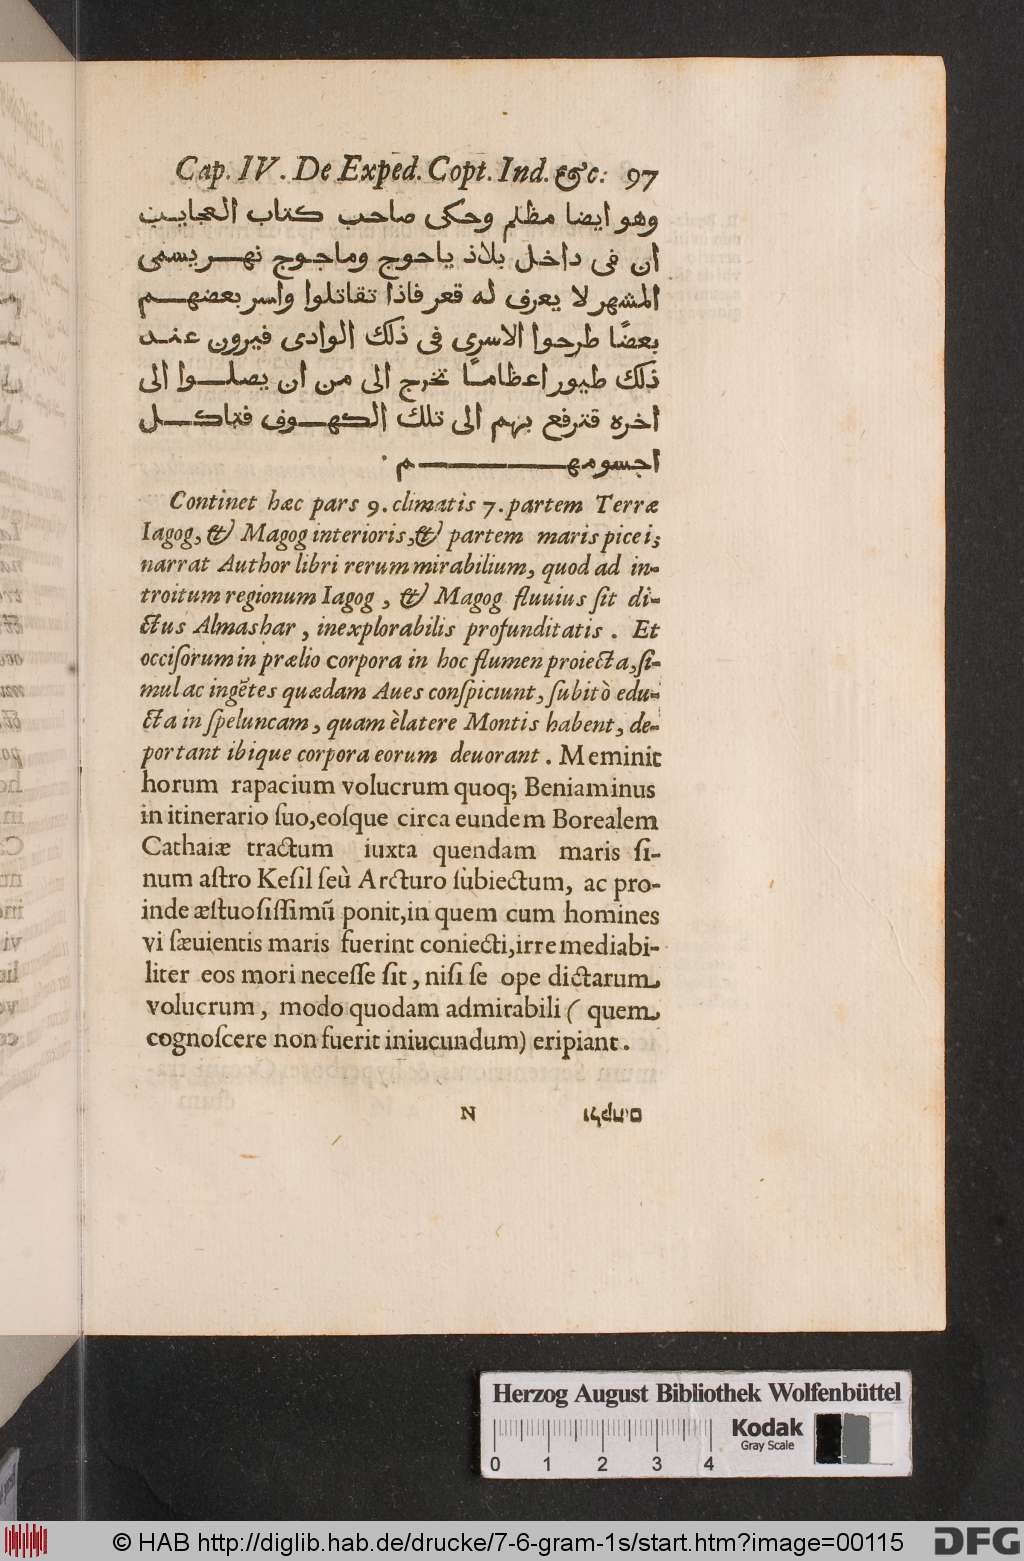 Cap. IV. De Exped. Copt. Ind. &c: 97
وهو ايضا مظلم وحكى صاحب كتاب العجايب
ان فى داخل بلاذ ياجوج وماجوج نهر يسمى
المشهر لا يعرف له قعر فاذا تقاتلوا واسر بعضهم
بعضًا طرحوا الاسرى فى ذلك الوادى فيرون عند
ذلك طيور اعظامًا تخرج الى من ان يصلوا الى
اخره قترفع بهم الى تلك الكهوف فتاكل
اجسومهم .
Continet hæc pars 9. climatis 7. partem Terræ
Iagog, & Magog interioris, & partem maris picei;
narrat Author libri rerum mirabilium, quod ad in-
troitum regionum Iagog, & Magog fluuius ſit di-
ctus Almashar, inexplorabilis profunditatis. Et
occiſorum in prælio corpora in hoc flumen proiecta, ſi-
mul ac ingẽtes quædam Aues conſpiciunt, ſubitò edu-
cta in ſpeluncam, quam è latere Montis habent, de-
portant ibique corpora eorum deuorant. Meminit
horum rapacium volucrum quoq; Beniaminus
in itinerario ſuo, eoſque circa eundem Borealem
Cathaiæ tractum iuxta quendam maris ſi-
num aſtro Keſil ſeù Arcturo ſubiectum, ac pro-
inde æſtuoſiſſimũ ponit, in quem cum homines
vi ſæuientis maris fuerint coniecti, irremediabi-
liter eos mori neceſſe ſit, niſi ſe ope dictarum
volucrum, modo quodam admirabili ( quem
cognoſcere non fuerit iniucundum) eripiant.
N
Herzog August Bibliothek Wolfenbüttel
0 1 2 3 4
Kodak
Gray Scale
© HAB http://diglib.hab.de/drucke/7-6-gram-1s/start.htm?image=00115
DFG